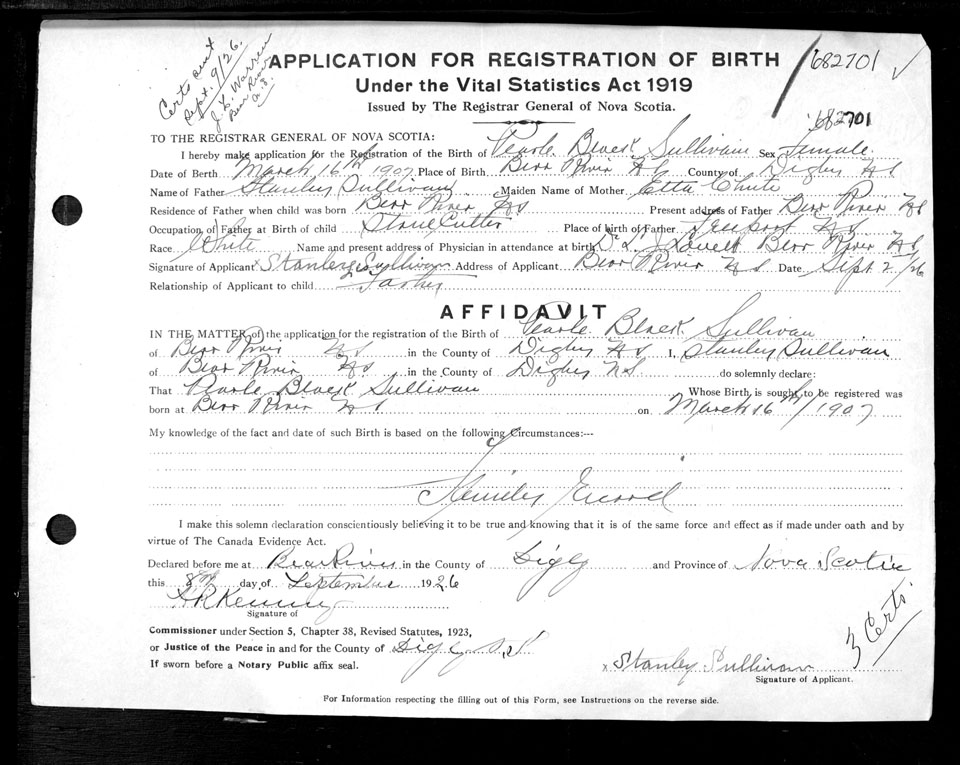 Certs sent
Sept. 9/26.
J. L. Warren
Bear River
N.S.
APPLICATION FOR REGISTRATION OF BIRTH
682701
Under the Vital Statistics Act 1919
Issued by The Registrar General of Nova Scotia.
682701
TO THE REGISTRAR GENERAL OF NOVA SCOTIA:
I hereby make application for the Registration of the Birth of Pearle Black Sullivan Sex Female.
Date of Birth March 16th 1907 Place of Birth Bear River N S County of Digby N S
Name of Father Stanley Sullivan Maiden Name of Mother Etta Chute
Residence of Father when child was born Bear River N S Present address of Father Bear River N S
Occupation of Father at Birth of child Stone Cutter Place of birth of Father Freeport N S
Race White Name and present address of Physician in attendance at birth Dr L J Lovett Bear River N S
Signature of Applicant x Stanley Sullivan Address of Applicant Bear River N S Date Sept 2/26
Relationship of Applicant to child Father
AFFIDAVIT
IN THE MATTER of the application for the registration of the Birth of Pearle Black Sullivan
of Bear River N S in the County of Digby N S I, Stanley Sullivan
of Bear River N S in the County of Digby N S do solemnly declare:
That Pearle Black Sullivan Whose Birth is sought to be registered was
born at Bear River N S on March 16th / 1907
My knowledge of the fact and date of such Birth is based on the following Circumstances:--
Family Record
I make this solemn declaration conscientiously believing it to be true and knowing that it is of the same force and effect as if made under oath and by
virtue of The Canada Evidence Act.
Declared before me at Bear River in the County of Digby and Province of Nova Scotia
this 8th day of September 1926
Signature of
Commissioner under Section 5, Chapter 38, Revised Statutes, 1923,
or Justice of the Peace in and for the County of Digby N.S.
If sworn before a Notary Public affix seal.
3 Certs
x Stanley Sullivan
Signature of Applicant.
For Information respecting the filling out of this Form, see Instructions on the reverse side.